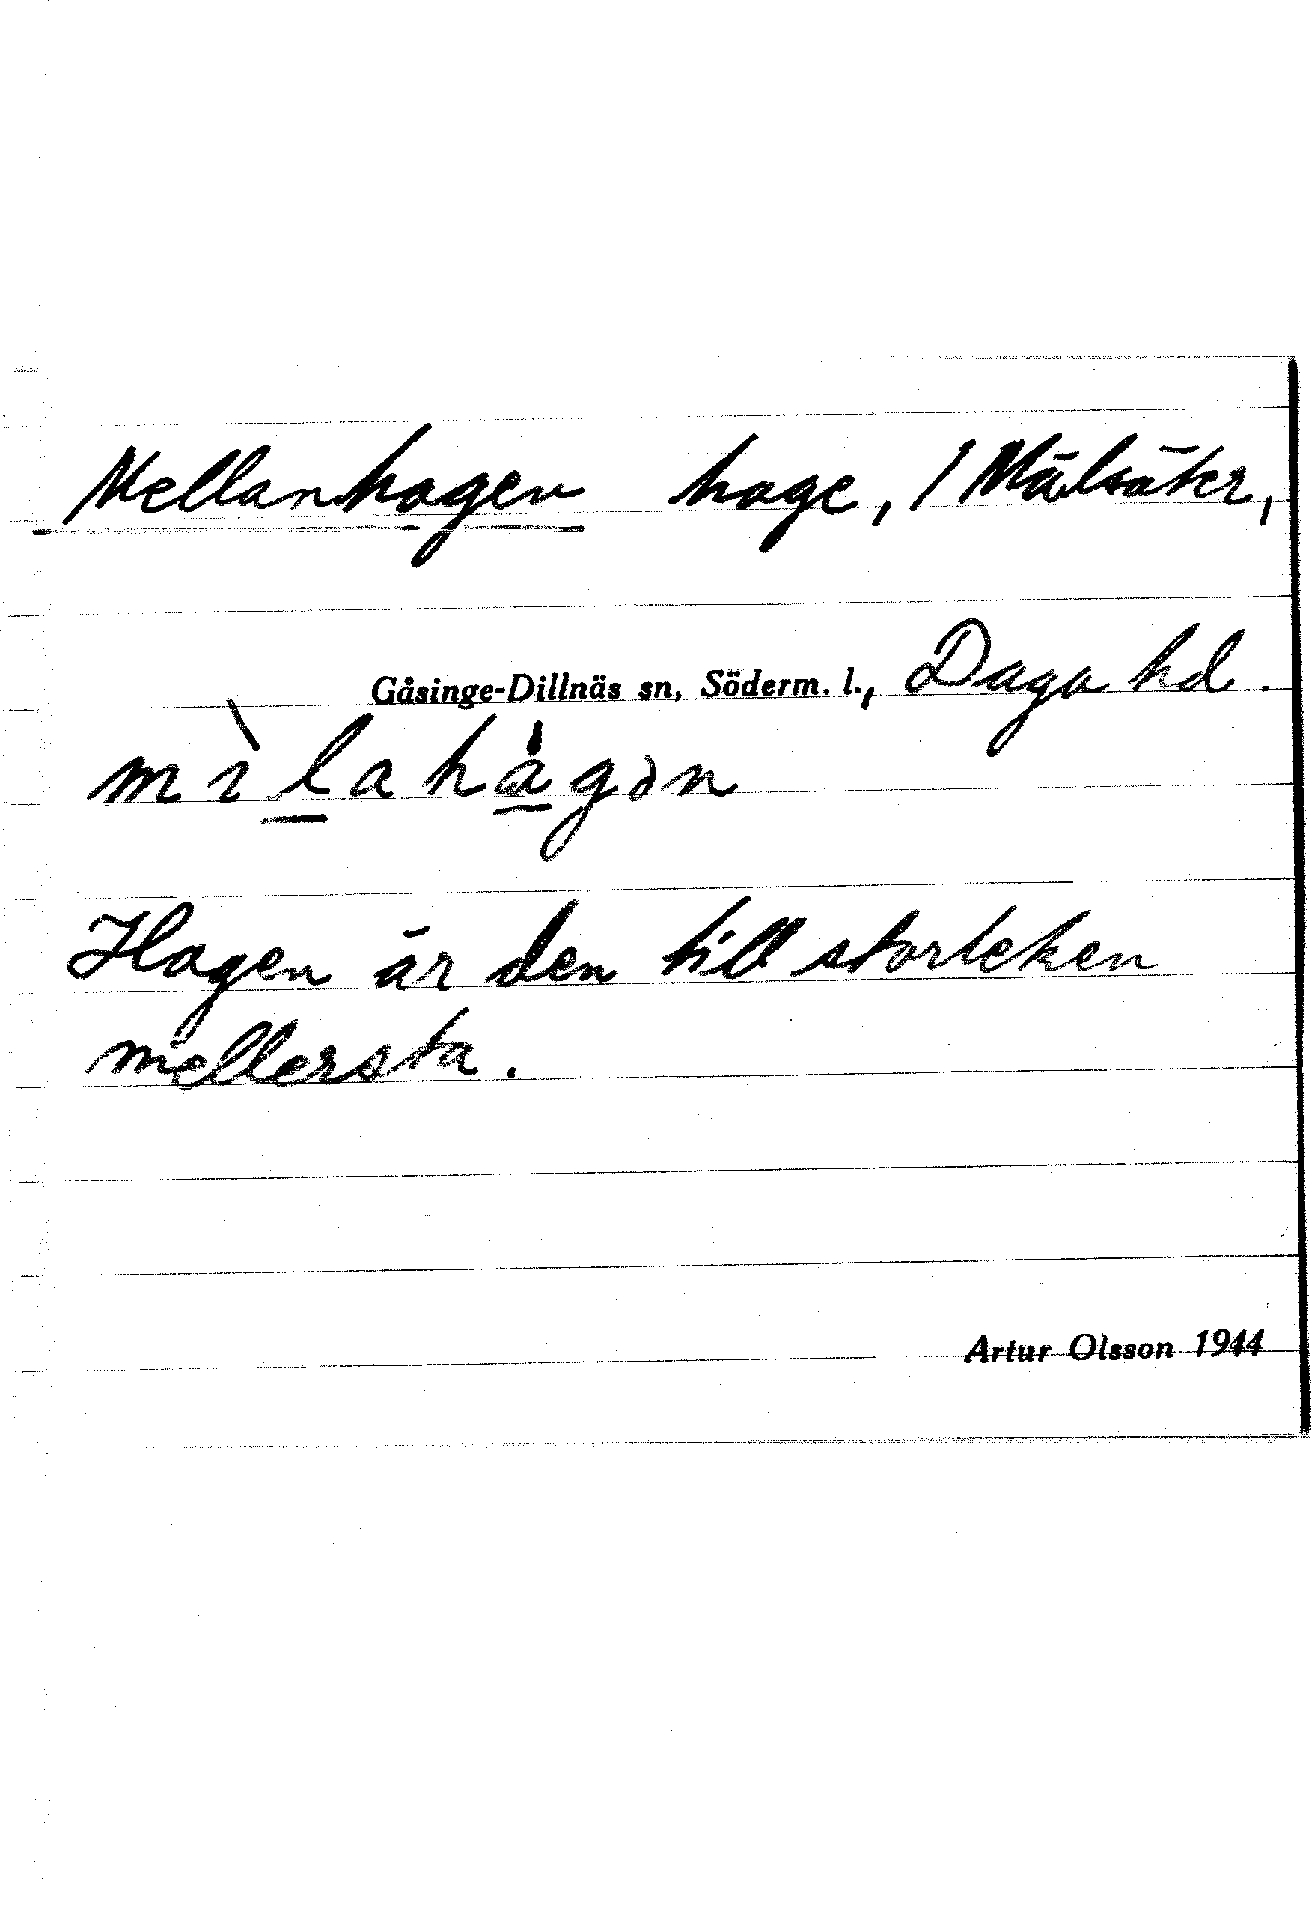 Mellanhagen hage, / Mälsäker,
Gåsinge-Dillnäs sn, Söderm. l., Daga hd.
Hagen är den till storleken
mellersta.
Artur Olsson 1944